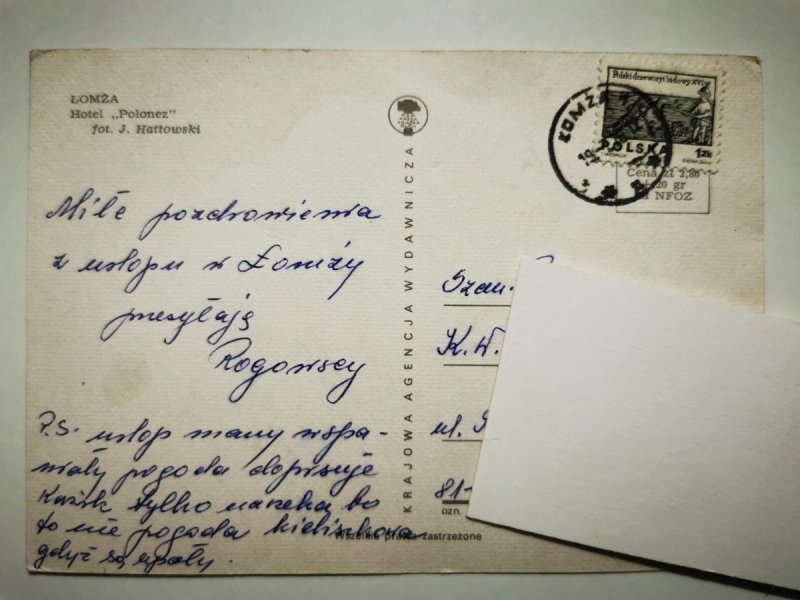 ŁOMŻA
Hotel „Polonez”
fot. J. Hattowski
Miłe pozdrowienia
z urlopu w Łomży
przesyłają
Rogowscy
P.S. urlop mamy wspa-
niały pogoda dopisuje
Kazik tylko narzeka bo
to nie pogoda kieliszkowa
gdyż są upały.
KRAJOWA AGENCJA WYDAWNICZA
Polski drzeworyt ludowy XVI w
POLSKA
1zł
ŁOMŻA
Cena zł 2,20
20 gr
NFOZ
Szan.
K. W.
ul.
81-
ozn.
Wszelkie prawa zastrzeżone